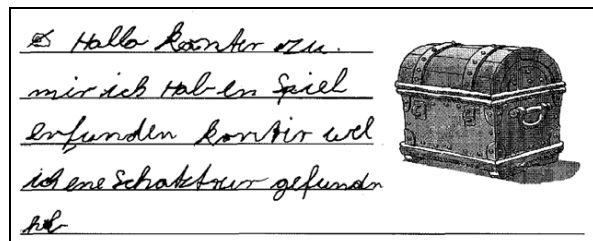 Hallo konter zu.
mir ich Hab en Spiel
erfunden kontir wel
ich ene Schatztrur gefundn
hb